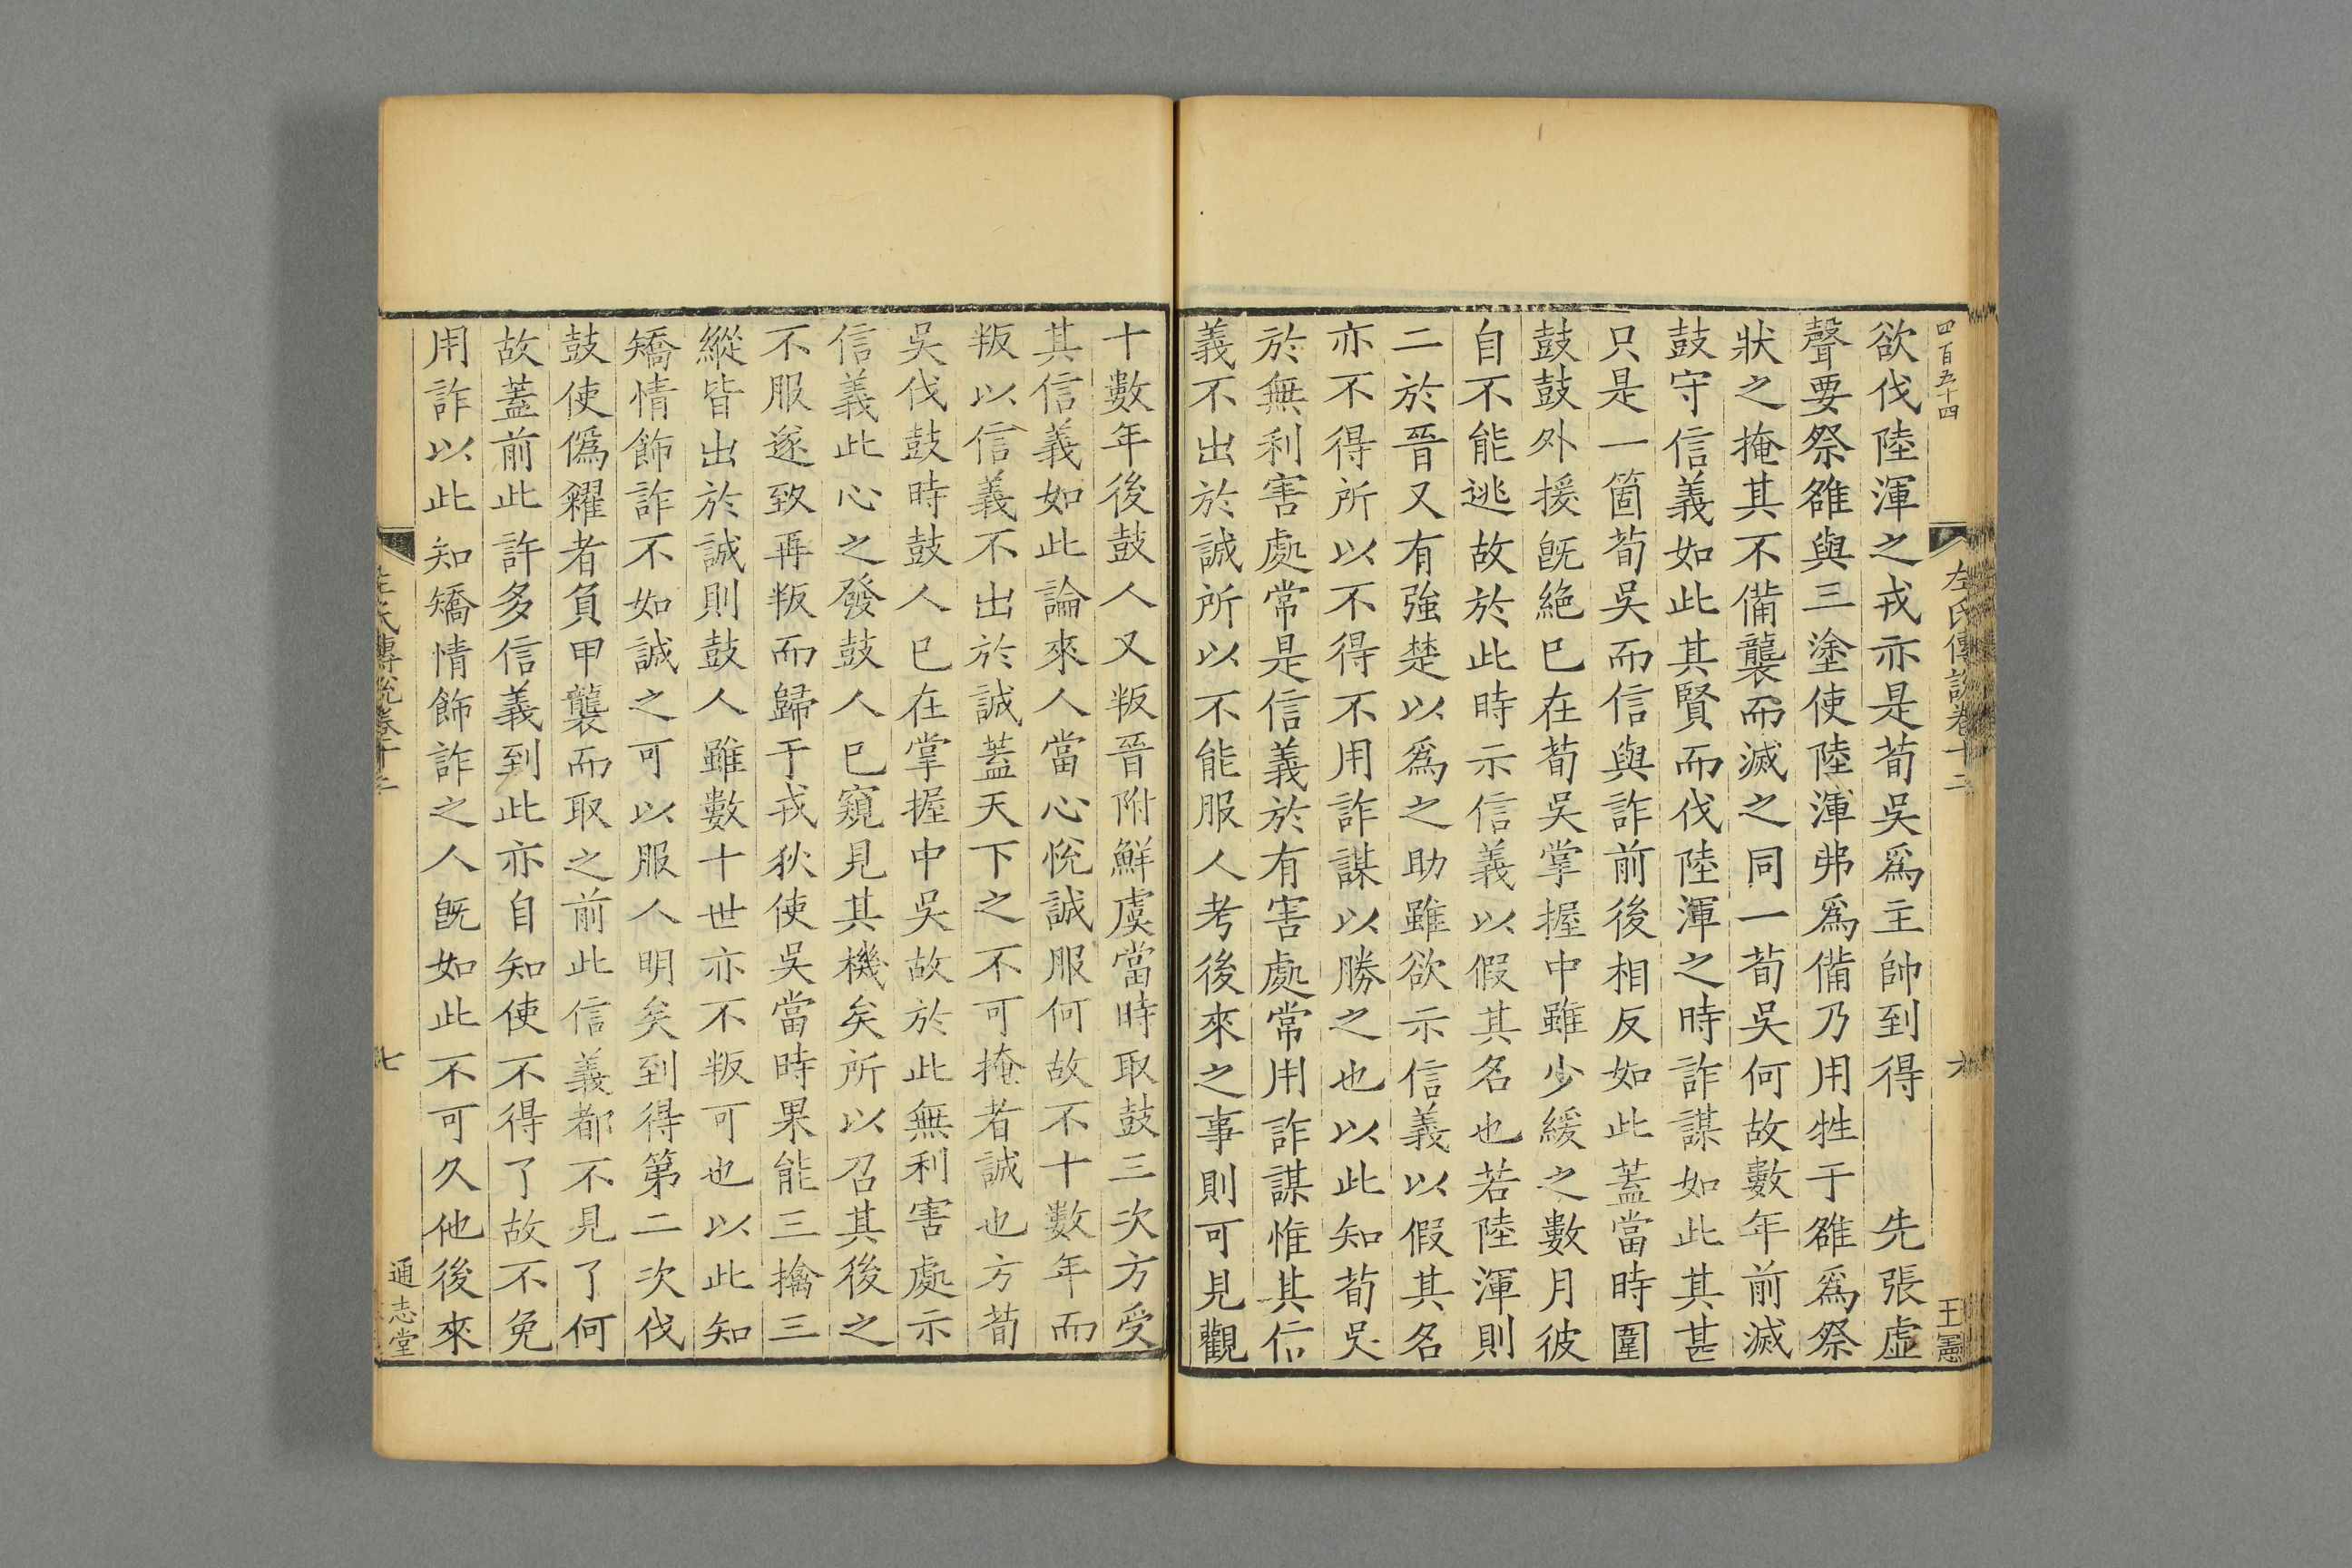 四百五十四
左氏傳說卷十二
六
王憲
欲伐陸渾之戎亦是荀吳爲主帥到得 先張虛
聲要祭雒與三塗使陸渾弗爲備乃用牲于雒爲祭
狀之掩其不備襲而滅之同一荀吳何故數年前滅
鼓守信義如此其賢而伐陸渾之時詐謀如此其甚
只是一箇荀吳而信與詐前後相反如此蓋當時圍
鼓鼓外援旣絕已在荀吳掌握中雖少緩之數月彼
自不能逃故於此時示信義以假其名也若陸渾則
二於晉又有強楚以爲之助雖欲示信義以假其名
亦不得所以不得不用詐謀以勝之也以此知荀吳
於無利害處常是信義於有害處常用詐謀惟其信
義不出於誠所以不能服人考後來之事則可見觀
十數年後鼓人又叛晉附鮮虞當時取鼓三次方受
其信義如此論來人當心悅誠服何故不十數年而
叛以信義不出於誠蓋天下之不可掩者誠也方荀
吳伐鼓時鼓人已在掌握中吳故於此無利害處示
信義此心之發鼓人已窺見其機矣所以召其後之
不服遂致再叛而歸于戎狄使吳當時果能三擒三
縱皆出於誠則鼓人雖數十世亦不叛可也以此知
矯情飾詐不如誠之可以服人明矣到得第二次伐
鼓使僞糴者負甲襲而取之前此信義都不見了何
故蓋前此許多信義到此亦自知使不得了故不免
用詐以此知矯情飾詐之人旣如此不可久他後來
左氏傳說卷十二
七
通志堂